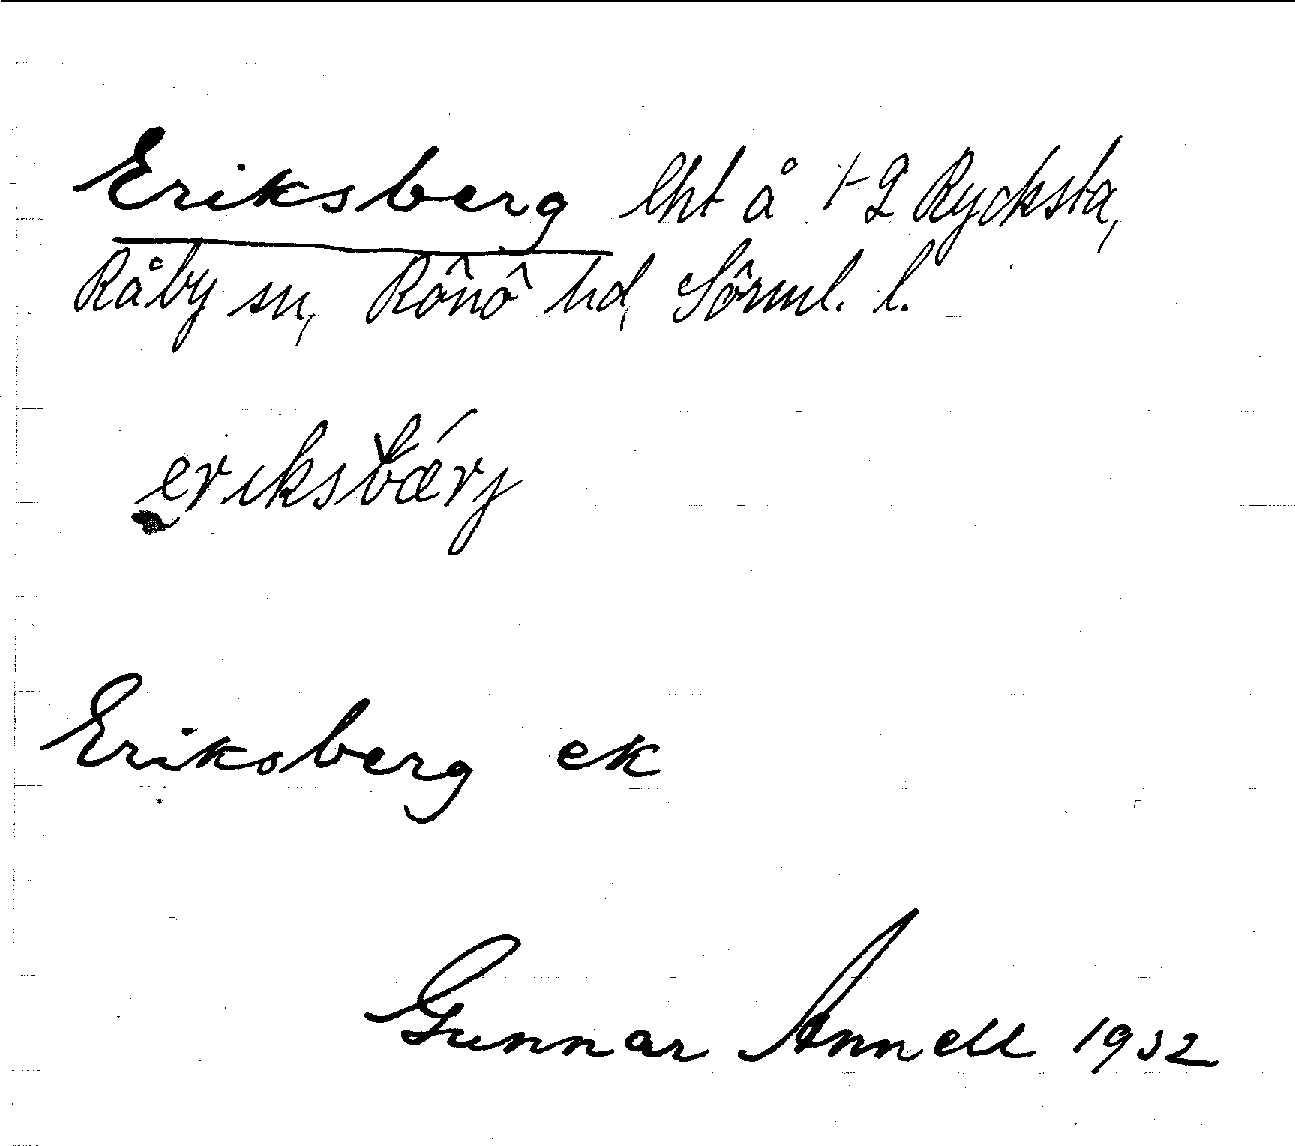 Eriksberg lht å 1-2 Rycksta,
Råby sn, Rönö hd, Sörml. l.
eriksbǽrj
Eriksberg ek
Gunnar Annell 1932